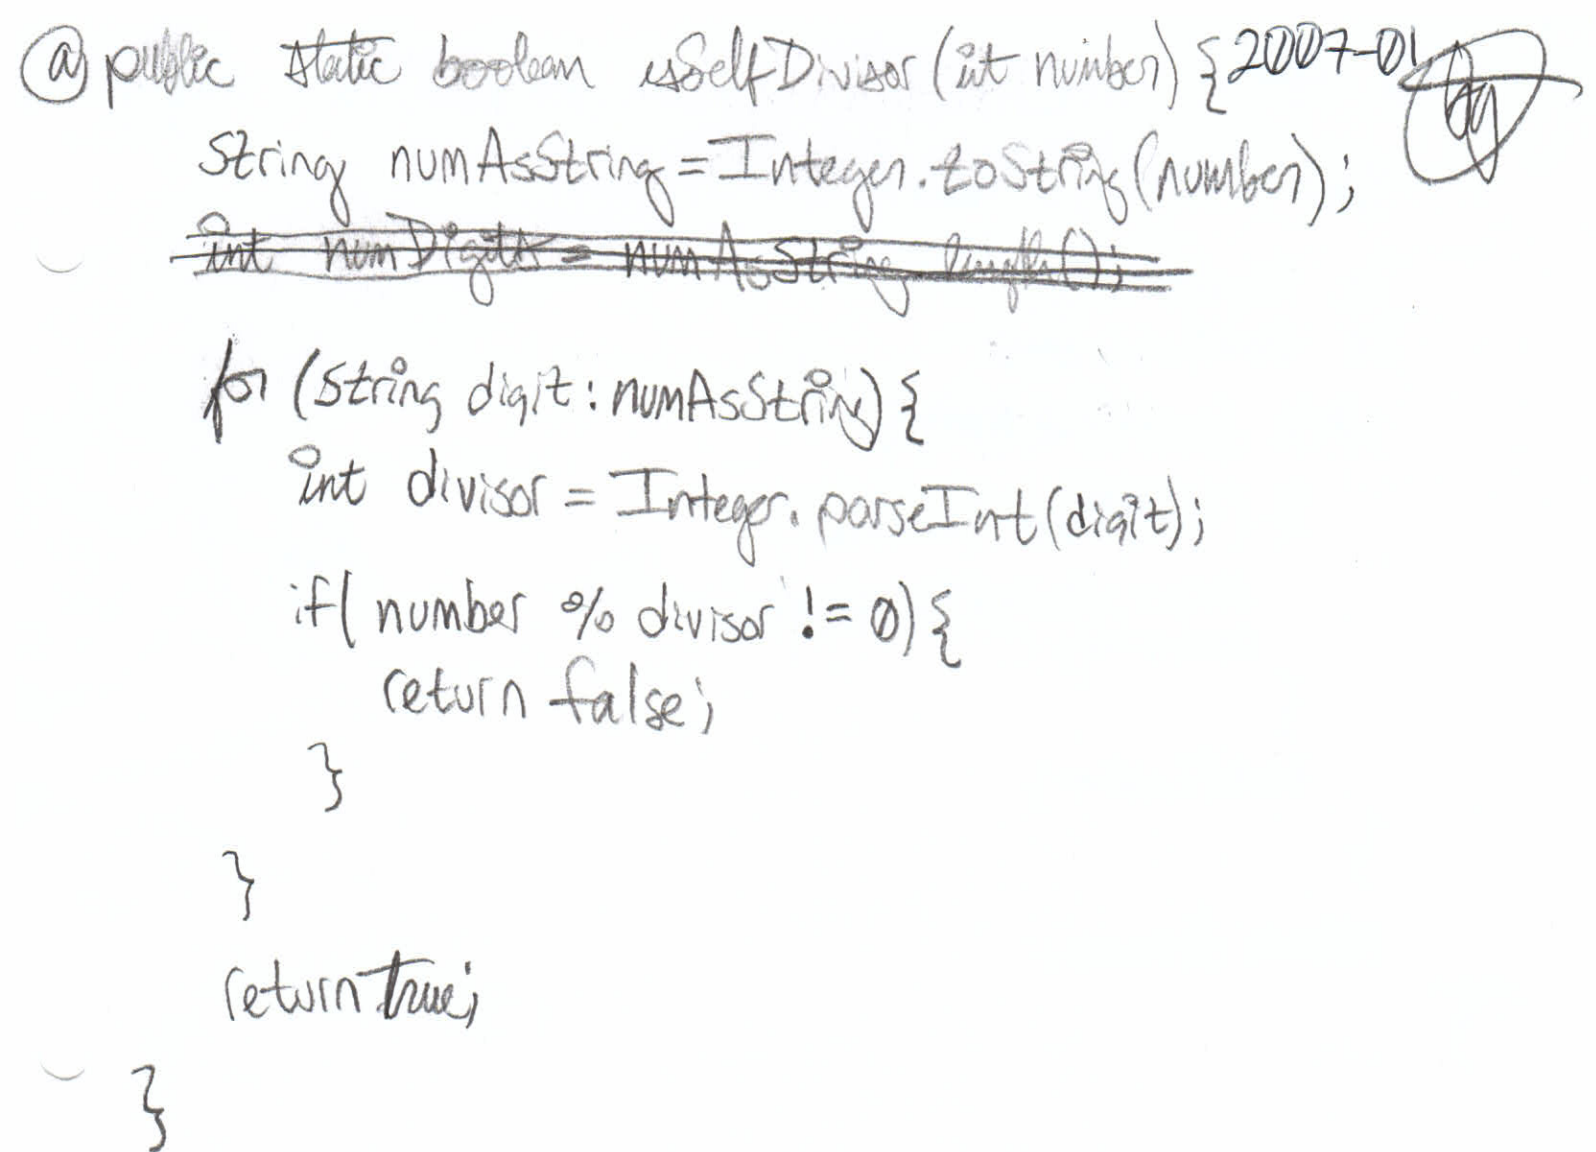 (a) public static boolean isSelfDivisor(int number) { 2007-01
String numAsString = Integer.toString(number);
int numDigits = numAsString.length();
for (String digit : numAsString) {
int divisor = Integer.parseInt(digit);
if( number % divisor != 0) {
return false;
}
}
return true;
}